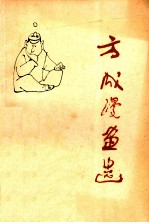 方成漫画选